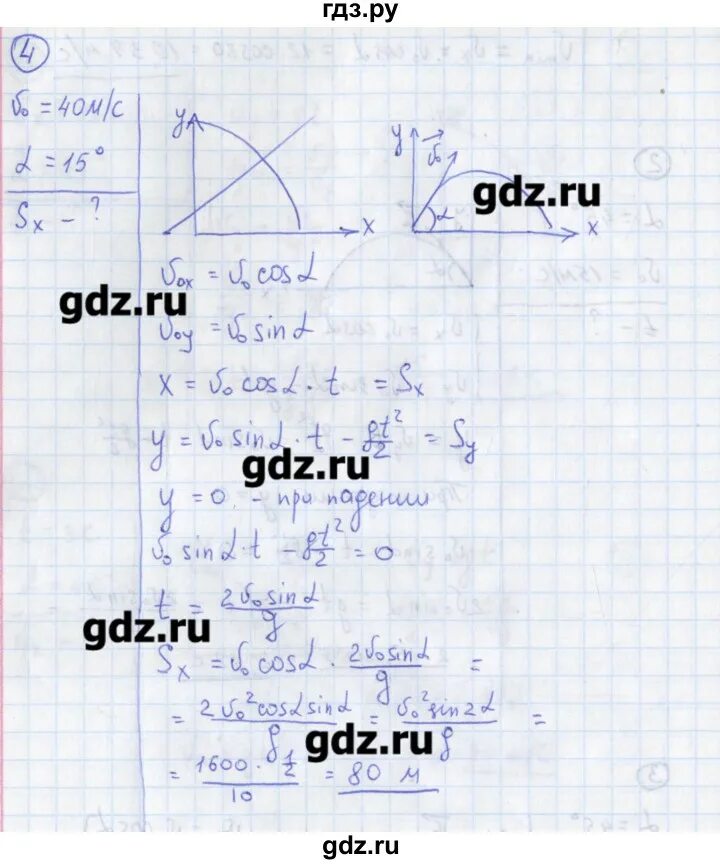 гдз.ру
4
υ₀ = 40 м/с
α = 15°
Sx - ?
y
x
y
υ₀
α
x
gdz.ru
υ₀x = υ₀ cosα
gdz.ru
υ₀y = υ₀ sinα
x = υ₀ cosα · t = Sx
y = υ₀ sinα · t - gt²/2 = Sy
gdz.ru
y = 0 - при падении
υ₀ sinα t - gt²/2 = 0
t = 2υ₀ sinα / g
gdz.ru
Sx = υ₀ cosα · 2υ₀ sinα / g =
= 2υ₀² cosα sinα / g = υ₀² sin2α / g =
gdz.ru
= 1600 · 1/2 / 10 = 80 м
gdz.ru